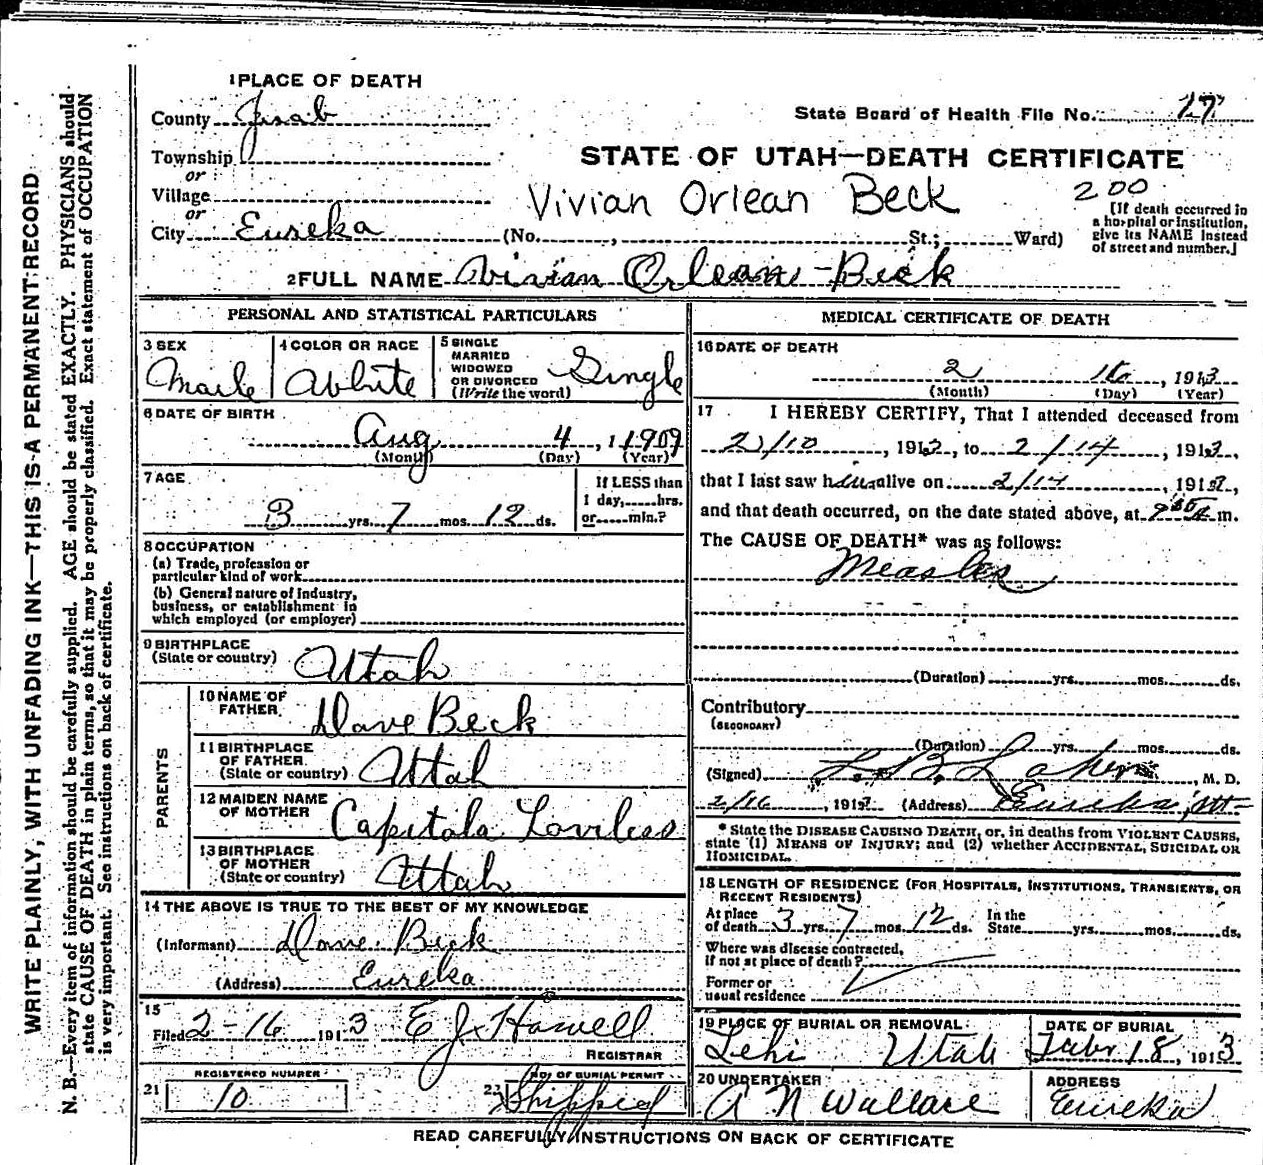 1 PLACE OF DEATH
County Juab
State Board of Health File No. 17
Township
or
STATE OF UTAH—DEATH CERTIFICATE
Village
or
Vivian Orlean Beck
200
City Eureka (No. , St.; Ward)
[If death occurred in a hospital or institution, give its NAME instead of street and number.]
2 FULL NAME Vivian Orleans Beck
PERSONAL AND STATISTICAL PARTICULARS
3 SEX
Male
4 COLOR OR RACE
White
5 SINGLE
MARRIED
WIDOWED
OR DIVORCED
(Write the word)
Single
6 DATE OF BIRTH
Aug 4, 1909
(Month) (Day) (Year)
7 AGE
3 yrs. 7 mos. 12 ds.
If LESS than
1 day, hrs.
or min.?
8 OCCUPATION
(a) Trade, profession or
particular kind of work
(b) General nature of industry,
business, or establishment in
which employed (or employer)
9 BIRTHPLACE
(State or country)
Utah
PARENTS
10 NAME OF
FATHER
Dave Beck
11 BIRTHPLACE
OF FATHER
(State or country)
Uttah
12 MAIDEN NAME
OF MOTHER
Capitola Loveless
13 BIRTHPLACE
OF MOTHER
(State or country)
Uttah
14 THE ABOVE IS TRUE TO THE BEST OF MY KNOWLEDGE
(Informant) Dave Beck
(Address) Eureka
15
Filed 2-16 1913 E J Howell
REGISTRAR
21 REGISTERED NUMBER
10
22 NO. OF BURIAL PERMIT
Shipped
MEDICAL CERTIFICATE OF DEATH
16 DATE OF DEATH
2 16, 1913
(Month) (Day) (Year)
17 I HEREBY CERTIFY, That I attended deceased from
2/10, 1913, to 2/14, 1913,
that I last saw h alive on 2/14, 191 ,
and that death occurred, on the date stated above, at m.
The CAUSE OF DEATH* was as follows:
Measles
(Duration) yrs. mos. ds.
Contributory
(SECONDARY)
(Duration) yrs. mos. ds.
(Signed) , M. D.
2/16, 191 (Address) Eureka, Ut
* State the DISEASE CAUSING DEATH, or, in deaths from VIOLENT CAUSES,
state (1) MEANS OF INJURY; and (2) whether ACCIDENTAL, SUICIDAL OR
HOMICIDAL.
18 LENGTH OF RESIDENCE (FOR HOSPITALS, INSTITUTIONS, TRANSIENTS, OR
RECENT RESIDENTS)
At place
of death 3 yrs. 7 mos. 12 ds.
In the
State yrs. mos. ds.
Where was disease contracted,
if not at place of death?
Former or
usual residence
19 PLACE OF BURIAL OR REMOVAL
Lehi Utah
DATE OF BURIAL
Febr 18, 1913
20 UNDERTAKER
A N Wallace
ADDRESS
Eureka
READ CAREFULLY INSTRUCTIONS ON BACK OF CERTIFICATE
WRITE PLAINLY, WITH UNFADING INK—THIS IS A PERMANENT RECORD
N. B.—Every item of information should be carefully supplied. AGE should be stated EXACTLY. PHYSICIANS should
state CAUSE OF DEATH in plain terms, so that it may be properly classified. Exact statement of OCCUPATION
is very important. See instructions on back of certificate.